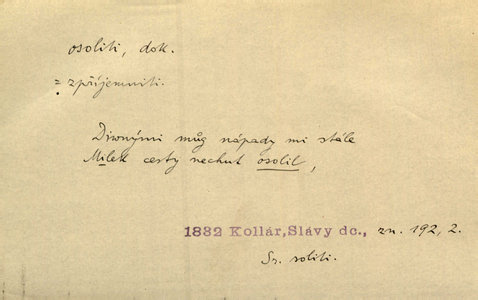 osoliti, dok.
= zpříjemniti.
Diwnými můg nápady mi stále
Milek cesty nechut osolil,
1832 Kollár, Slávy dc., zn. 192, 2.
Sr. soliti.